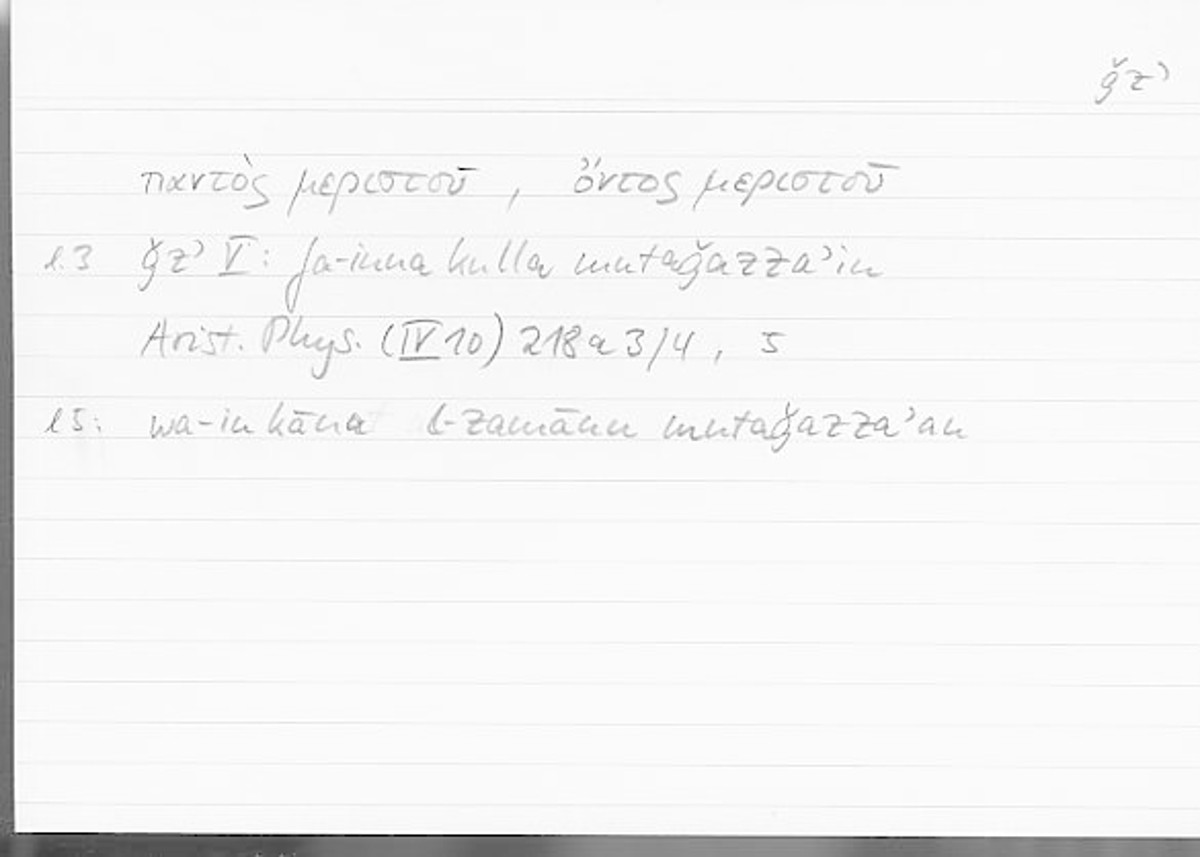 ǧzʾ
παντὸς μεριστοῦ, ὄντος μεριστοῦ
l.3 ǧzʾ V: fa-inna kulla mutaǧazzaʾin
Arist. Phys. (IV 10) 218a3/4, 5
l5: wa-in kāna l-zamānu mutaǧazzaʾan